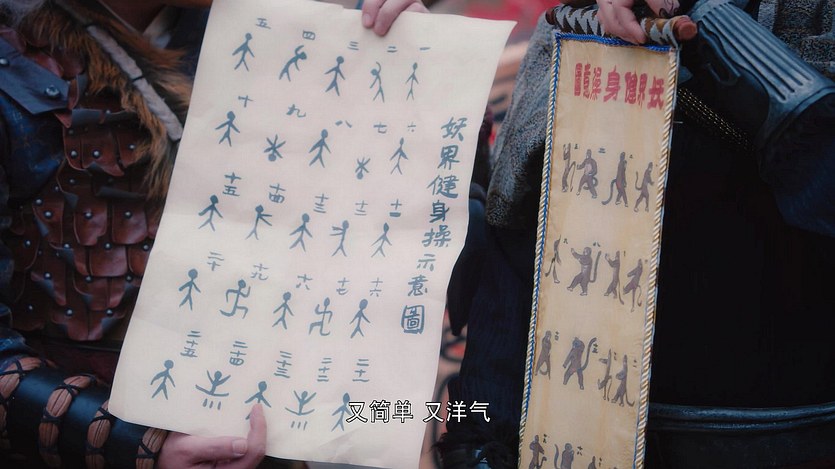 妖界健身操示意圖
一 二 三 四 五
六 七 八 九 十
十一 十二 十三 十四 十五
十六 十七 十八 十九 二十
二十一 二十二 二十三 二十四 二十五
妖界健身操圖
又简单 又洋气